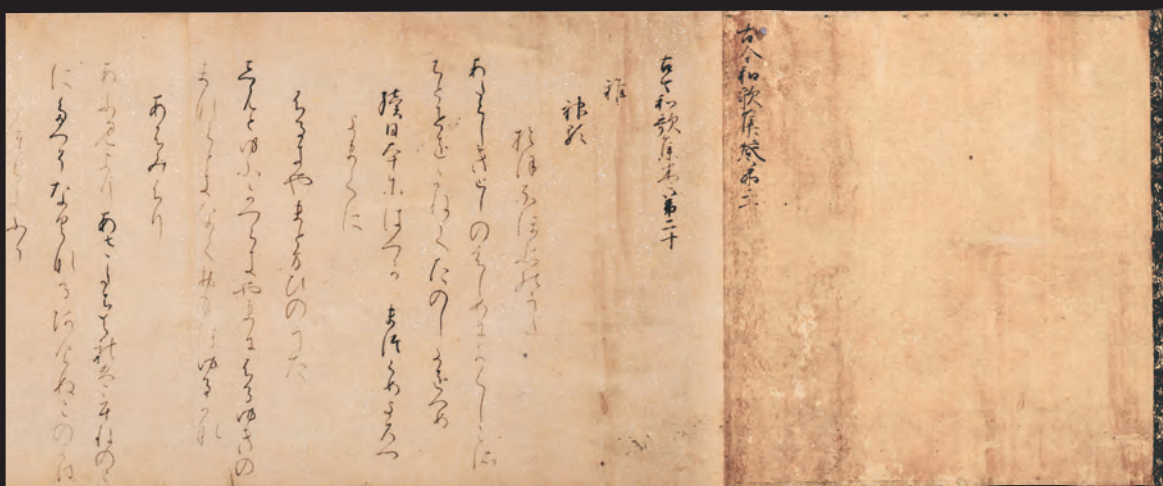 古今和歌集巻第二十
古今和歌集巻第二十
雑
おほなほひのうた
あたらしきとしのはしめにかくしこそ
ちとせをかねてたのしきをつめ
續日本紀には つかへまつらめよろつ
よまてに
ふるきやまとまひのうた
しもとゆふかつらきやまにふるゆきの
まなくときなくおもほゆるかな
あふみふり
あふみよりあさたちくれはうねのの
にたつそなくなるあけぬこのよは